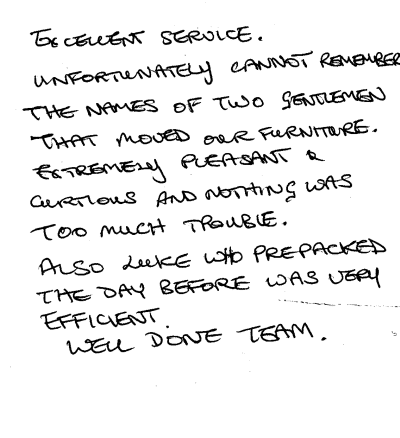 EXCELLENT SERVICE.
UNFORTUNATELY CANNOT REMEMBER
THE NAMES OF TWO GENTLEMEN
THAT MOVED OUR FURNITURE.
EXTREMELY PLEASANT &
CURTIOUS AND NOTHING WAS
TOO MUCH TROUBLE.
ALSO LUKE WHO PREPACKED
THE DAY BEFORE WAS VERY
EFFICIENT.
WELL DONE TEAM.